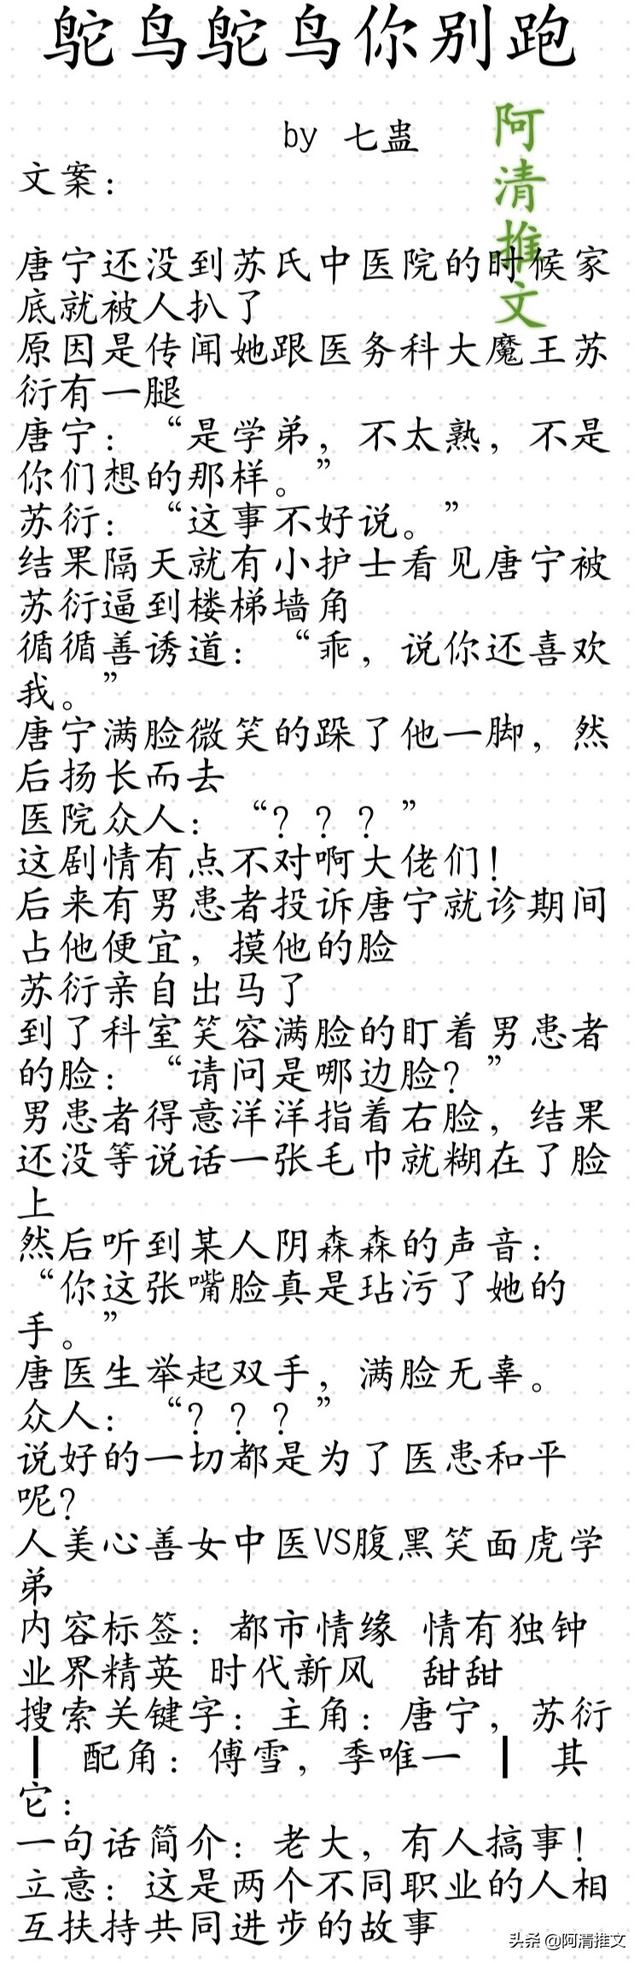 鸵鸟鸵鸟你别跑
by 七蛊
阿清推文
文案：
唐宁还没到苏氏中医院的时候家
底就被人扒了
原因是传闻她跟医务科大魔王苏
衍有一腿
唐宁：“是学弟，不太熟，不是
你们想的那样。”
苏衍：“这事不好说。”
结果隔天就有小护士看见唐宁被
苏衍逼到楼梯墙角
循循善诱道：“乖，说你还喜欢
我。”
唐宁满脸微笑的跺了他一脚，然
后扬长而去
医院众人：“？？？”
这剧情有点不对啊大佬们！
后来有男患者投诉唐宁就诊期间
占他便宜，摸他的脸
苏衍亲自出马了
到了科室笑容满脸的盯着男患者
的脸：“请问是哪边脸？”
男患者得意洋洋指着右脸，结果
还没等说话一张毛巾就糊在了脸
上
然后听到某人阴森森的声音：
“你这张嘴脸真是玷污了她的
手。”
唐医生举起双手，满脸无辜。
众人：“？？？”
说好的一切都是为了医患和平
呢？
人美心善女中医VS腹黑笑面虎学
弟
内容标签：都市情缘 情有独钟
业界精英 时代新风 甜甜
搜索关键字：主角：唐宁，苏衍
┃ 配角：傅雪，季唯一 ┃ 其
它：
一句话简介：老大，有人搞事！
立意：这是两个不同职业的人相
互扶持共同进步的故事
头条 @阿清推文